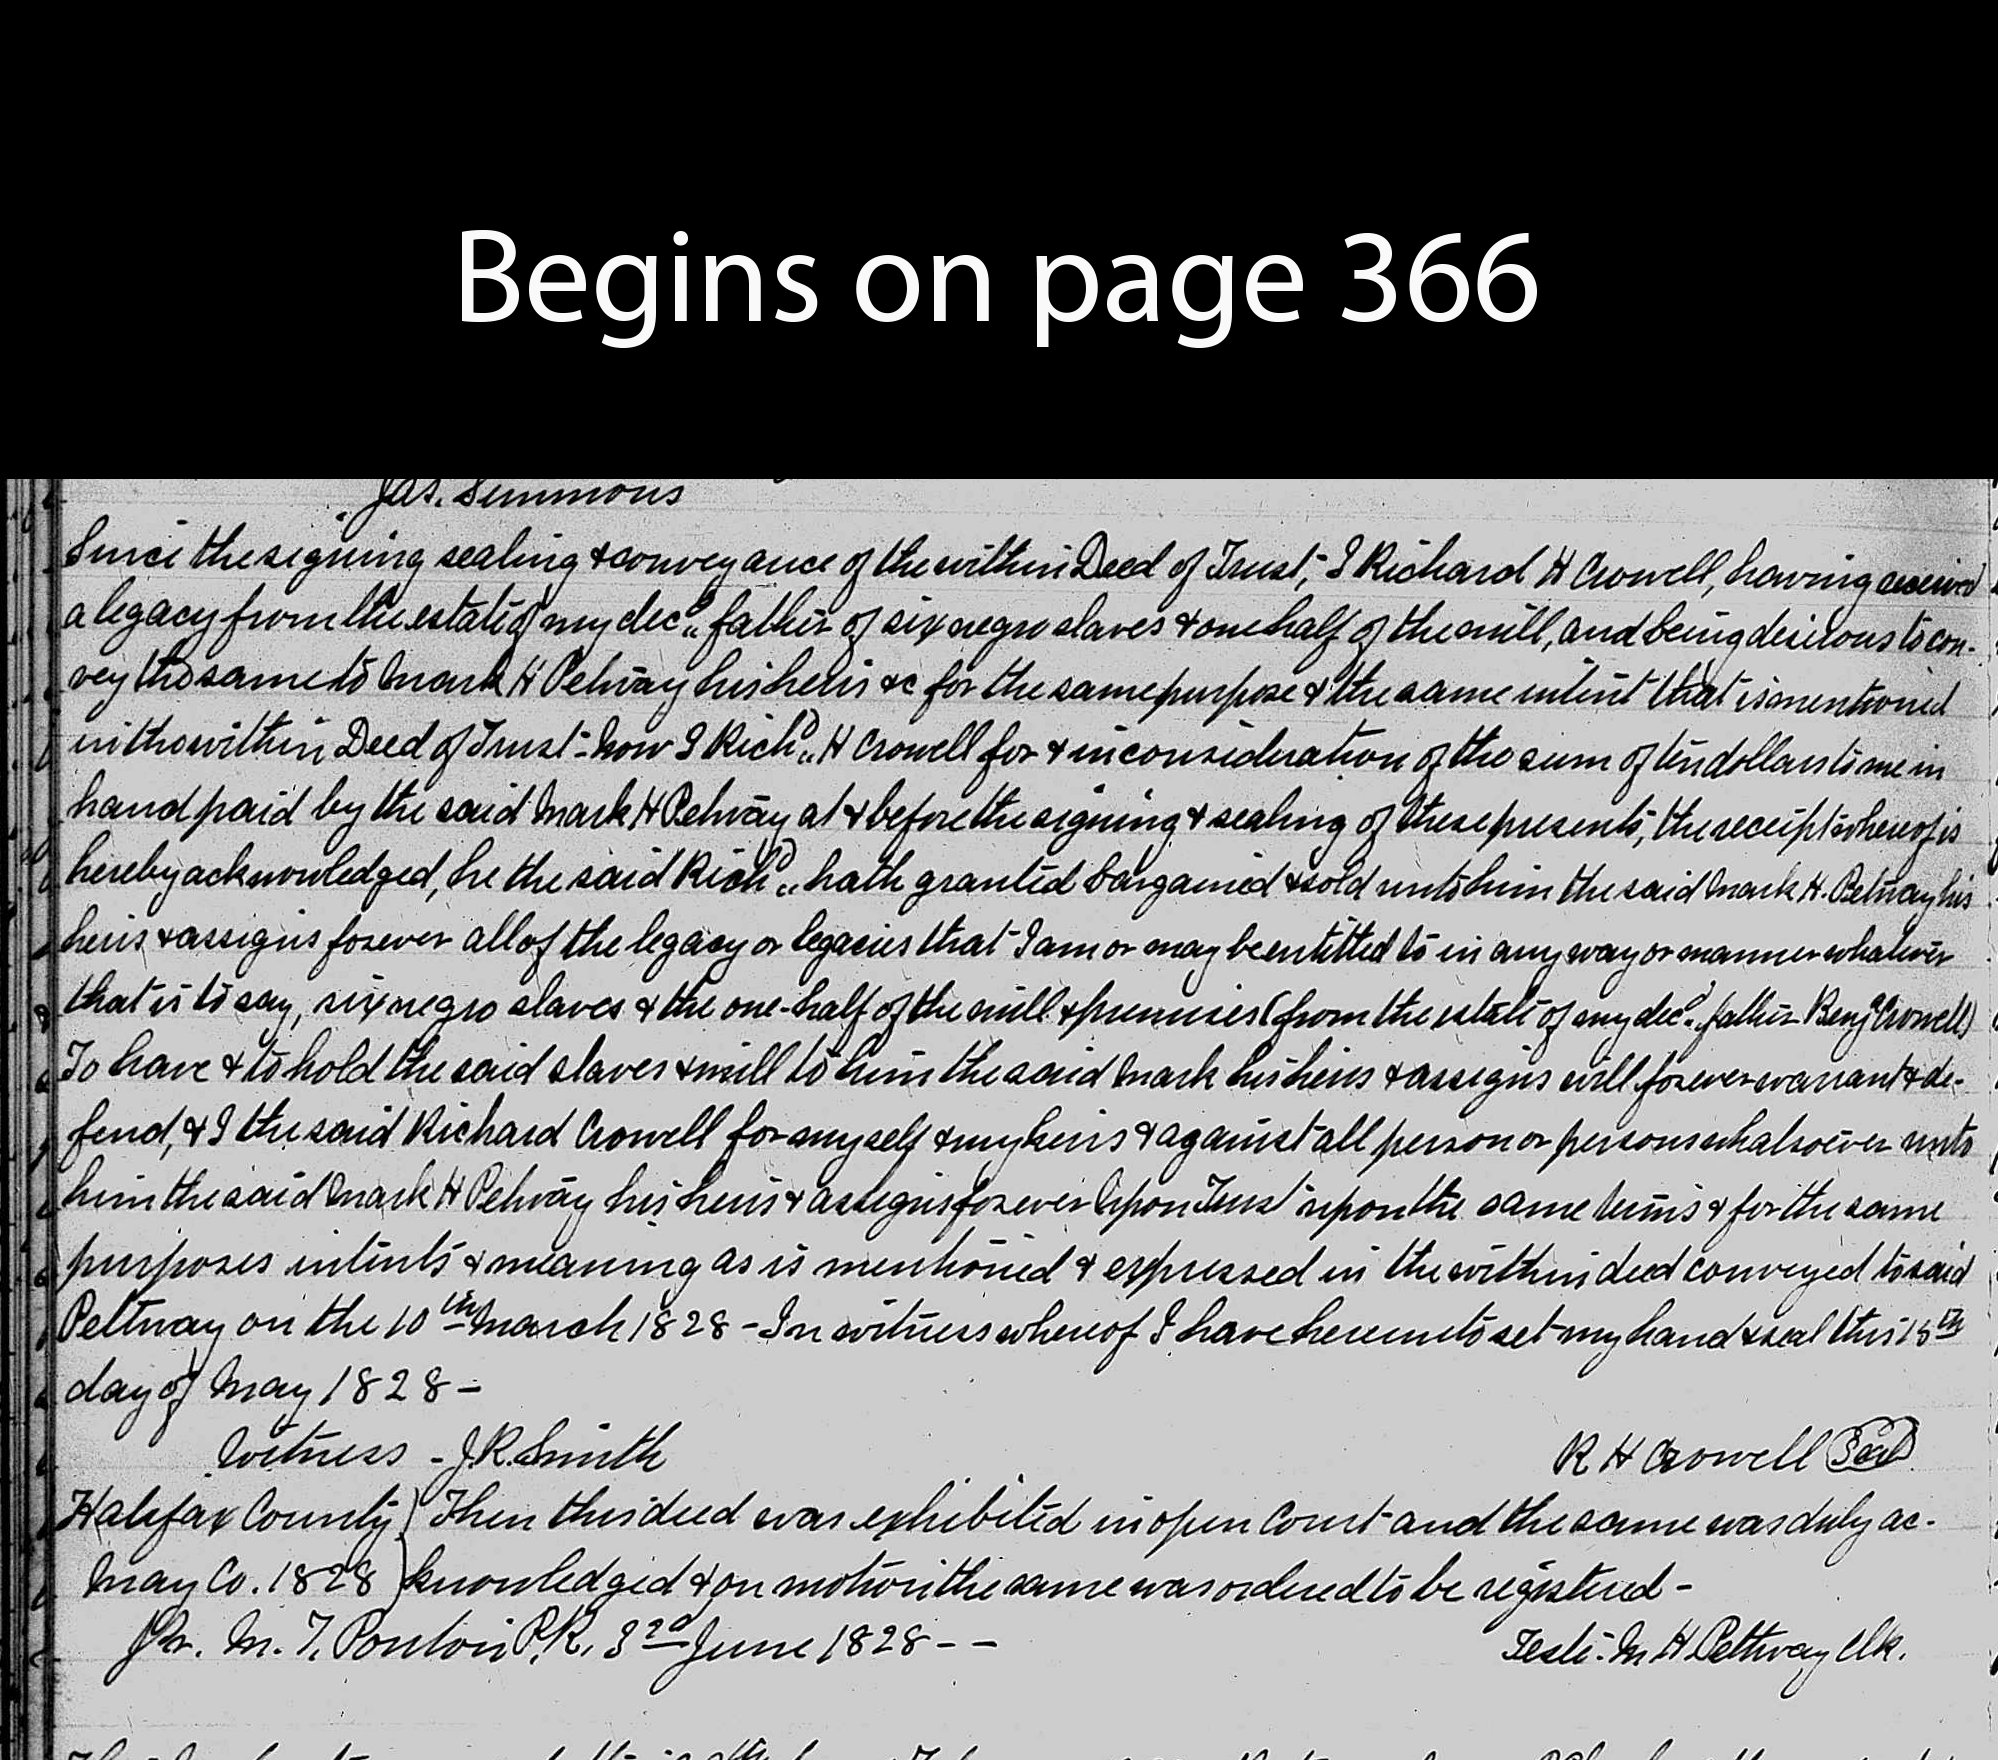 Begins on page 366
Jas. Simmons
Since the signing sealing & conveyance of the within Deed of Trust, I Richard H Crowell, having received
a legacy from the estate of my decd. father of six negro slaves & one half of the mill, and being desirous to con-
vey the same to Mark H Petway his heirs &c for the same purpose & the same intent that is mentioned
in the within Deed of Trust - now I Richd. H Crowell for & in consideration of the sum of ten dollars to me in
hand paid by the said Mark H Petway at & before the signing & sealing of these presents, the receipt whereof is
hereby acknowledged, he the said Richd. hath granted bargained & sold unto him the said Mark H. Petway his
heirs & assigns forever all of the legacy or legacies that I am or may be entitled to in any way or manner whatever
that is to say, six negro slaves & the one-half of the mill & premises (from the estate of my decd. father Benj Crowell)
To have & to hold the said slaves & mill to him the said Mark his heirs & assigns will forever warrant & de-
fend, & I the said Richard Crowell for myself & my heirs & against all person or persons whatsoever unto
him the said Mark H Petway his heirs & assigns forever Upon Trust upon the same terms & for the same
purposes intents & meaning as is mentioned & expressed in the within deed conveyed to said
Pettway on the 10th March 1828 - In witness whereof I have hereunto set my hand & seal this 15th
day of May 1828 -
Witness - J. R. Smith R H Crowell Seal
Halifax County } Then this deed was exhibited in open Court and the same was duly ac-
May Co. 1828 } knowledged & on motion the same was ordered to be registered -
Pr. M. T. Ponton P.R. 3rd June 1828 - - Teste. M H Pettway Clk.